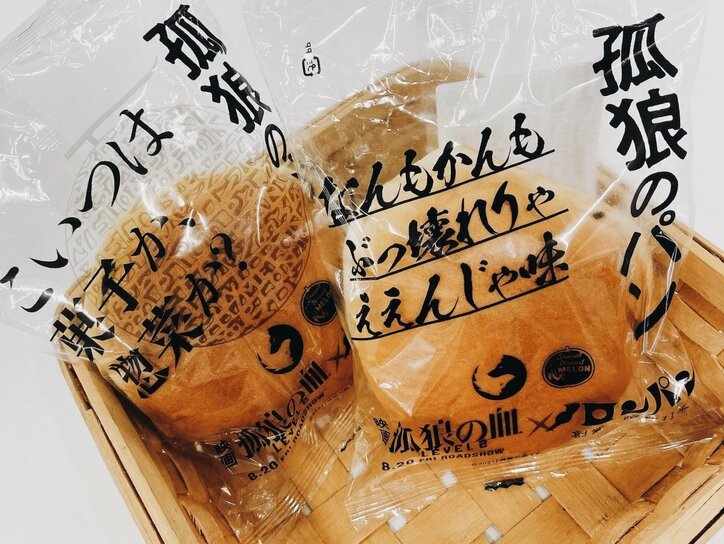 孤狼の
こいつは
菓子か、
惣菜か?
MELON
映画 孤狼の血
LEVEL2
8.20 FRI ROADSHOW
孤狼のパン
なんもかんも
ぶっ壊れりゃ
ええんじゃ味
MELON
映画 孤狼の血×メロンパン
LEVEL2
8.20 FRI ROADSHOW